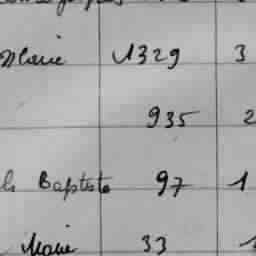 Marie 1329 3
935 2
Baptiste 97 1
Marie 33 1